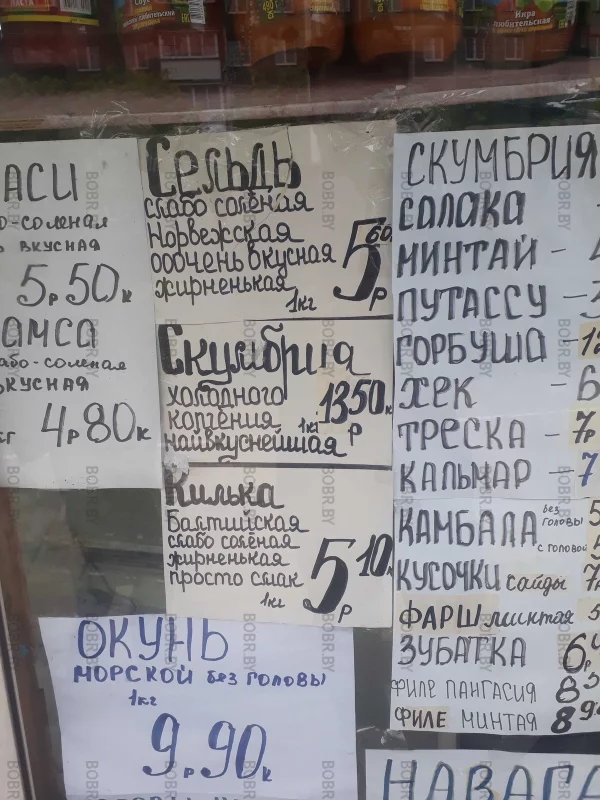 АСИ
О-СОЛЕНАЯ
ВКУСНАЯ
5р.50к
АМСА
або-соленая
ВКУСНАЯ
4р80к
Сельдь
слабо соления
Норвежская
ооочень вкусная
жирненькая
1кг
5р 60
Скумбрия
холодного
копчения
наивкуснейшая
1кг
13р50к
Килька
Балтийская
слабо солёная
жирненькая
просто смак
1кг
5р 10к
ОКУНЬ
МОРСКОЙ без ГОЛОВЫ
1кг
9р.90к
СКУМБРИЯ
САЛАКА -
МИНТАЙ -
ПУТАССУ -
ГОРБУША -
ХЕК - 6
ТРЕСКА - 7р
КАЛЬМАР - 7
КАМБАЛА без головы 5
с головой 5
КУСОЧКИ сайды 7
ФАРШ минтая 5
ЗУБАТКА 6р
ФИЛЕ ПАНГАСИЯ 8
ФИЛЕ МИНТАЯ 8
НАВАГА
BOBR.BY